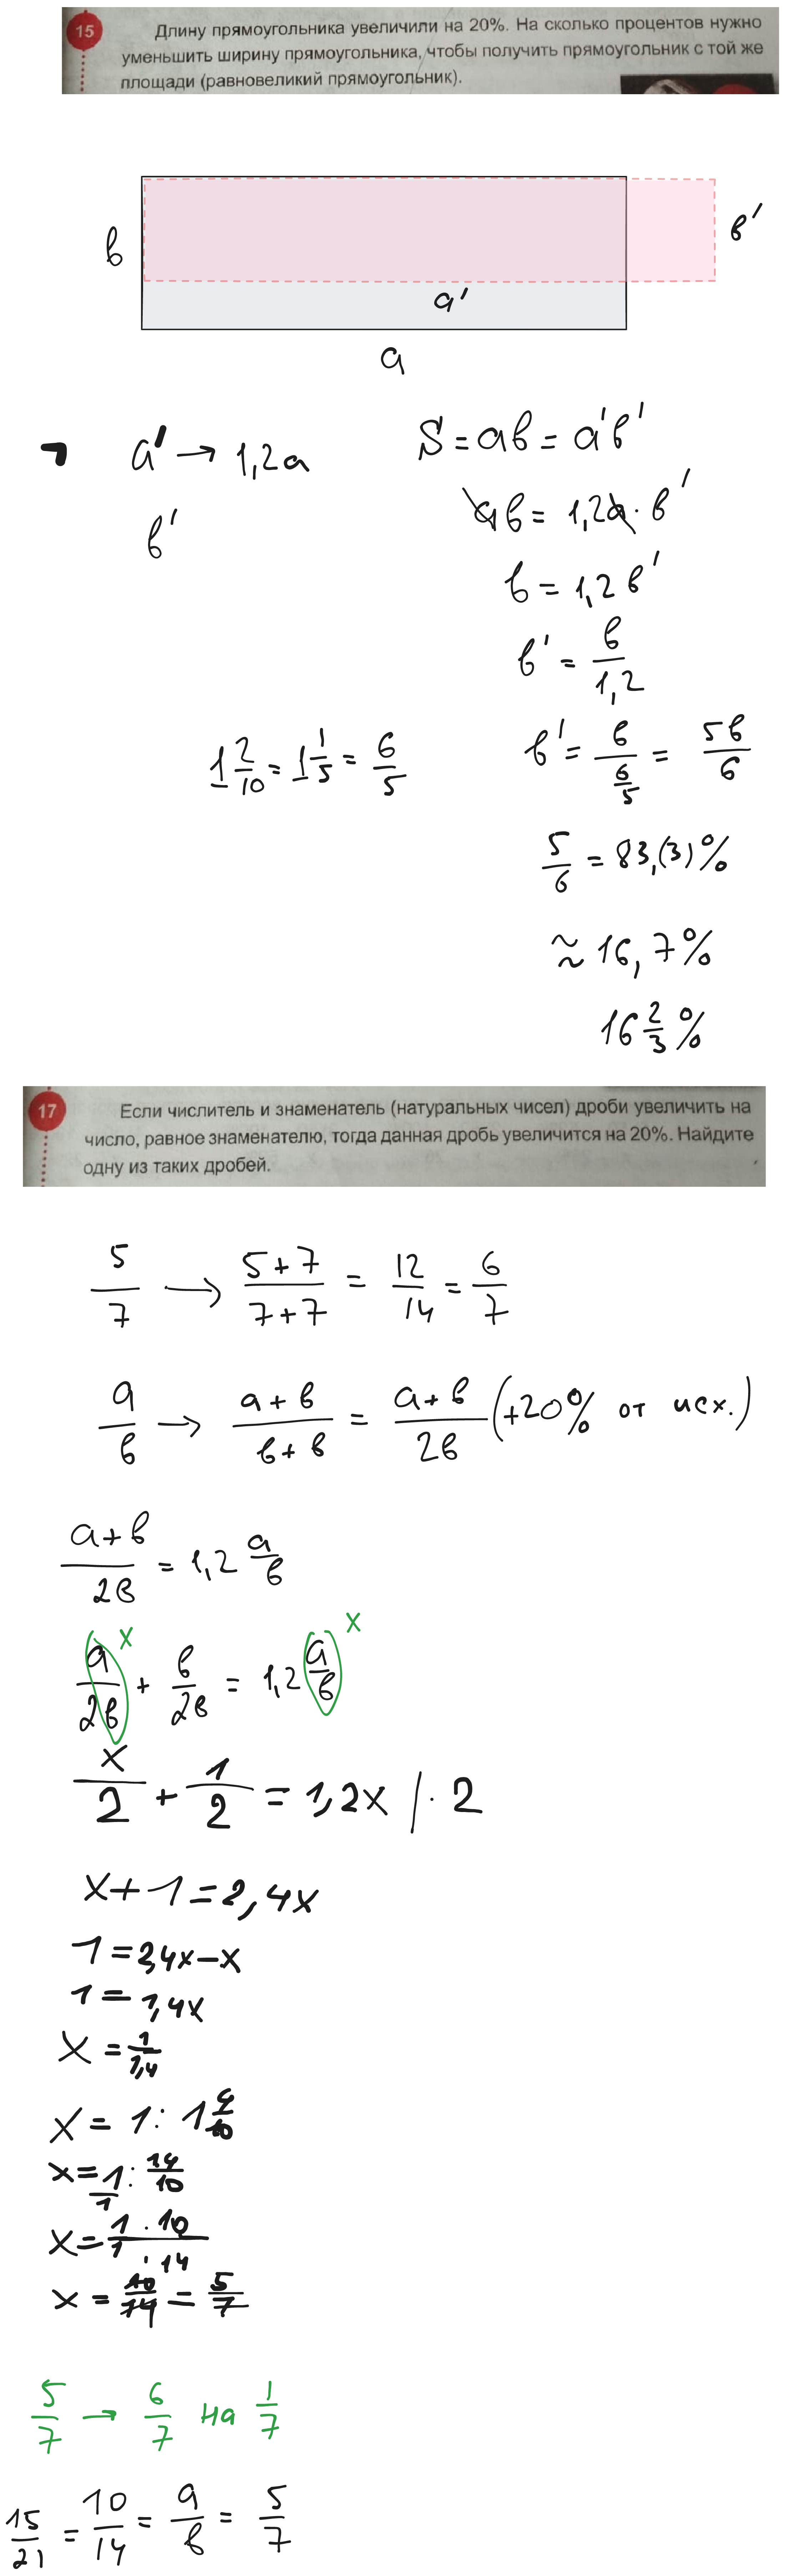 15
Длину прямоугольника увеличили на 20%. На сколько процентов нужно
уменьшить ширину прямоугольника, чтобы получить прямоугольник с той же
площади (равновеликий прямоугольник).
в
в'
a'
a
a' → 1,2a
S = aв = a'в'
в'
aв = 1,2a · в'
в = 1,2 в'
в' = в/1,2
1 2/10 = 1 1/5 = 6/5
в' = в/(6/5) = 5в/6
5/6 = 83,(3)%
≈ 16,7%
16 2/3 %
17
Если числитель и знаменатель (натуральных чисел) дроби увеличить на
число, равное знаменателю, тогда данная дробь увеличится на 20%. Найдите
одну из таких дробей.
5/7 → (5+7)/(7+7) = 12/14 = 6/7
a/в → (a+в)/(в+в) = (a+в)/2в (+20% от исх.)
(a+в)/2в = 1,2 a/в
x
x
a/2в + в/2в = 1,2 a/в
x/2 + 1/2 = 1,2x /· 2
x+1=2,4x
1=2,4x-x
1=1,4x
x = 1/1,4
x = 1 : 1 4/10
x = 1/1 : 14/10
x = 1·10/1·14
x = 10/14 = 5/7
5/7 → 6/7 на 1/7
15/21 = 10/14 = a/в = 5/7